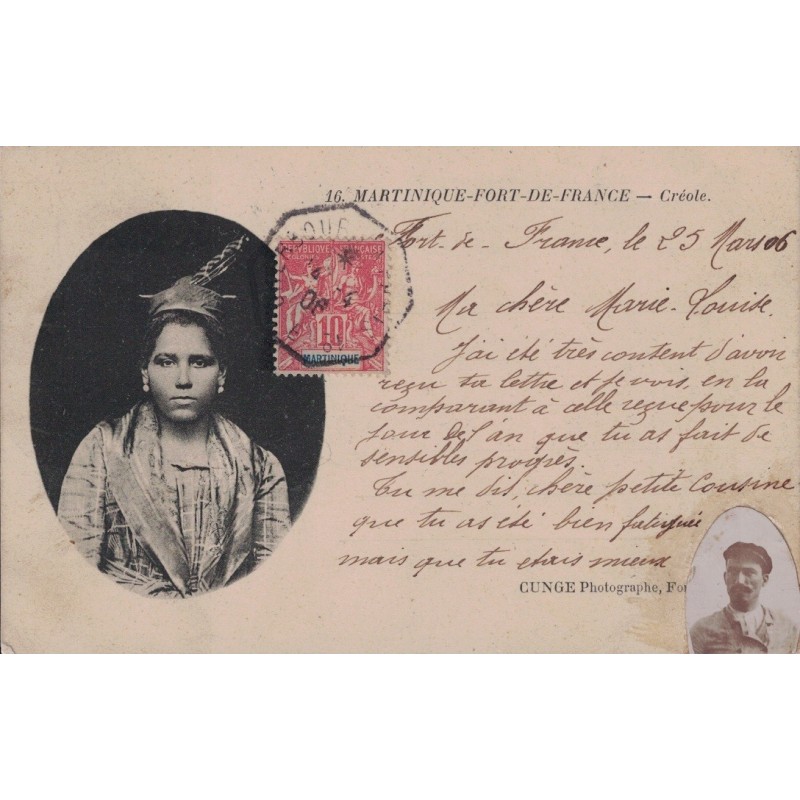 16. MARTINIQUE-FORT-DE-FRANCE — Créole.
REPUBLIQUE FRANÇAISE
COLONIES POSTES
10
MARTINIQUE
Fort-de-France, le 25 Mars 06
Ma chère Marie-Louise.
J'ai été très content d'avoir
reçu ta lettre et je vois, en la
comparant à celle reçue pour le
jour de l'an que tu as fait de
sensibles progrès.
Tu me dis, chère petite Cousine
que tu as été bien fatiguée
mais que tu etais mieux
CUNGE Photographe, For